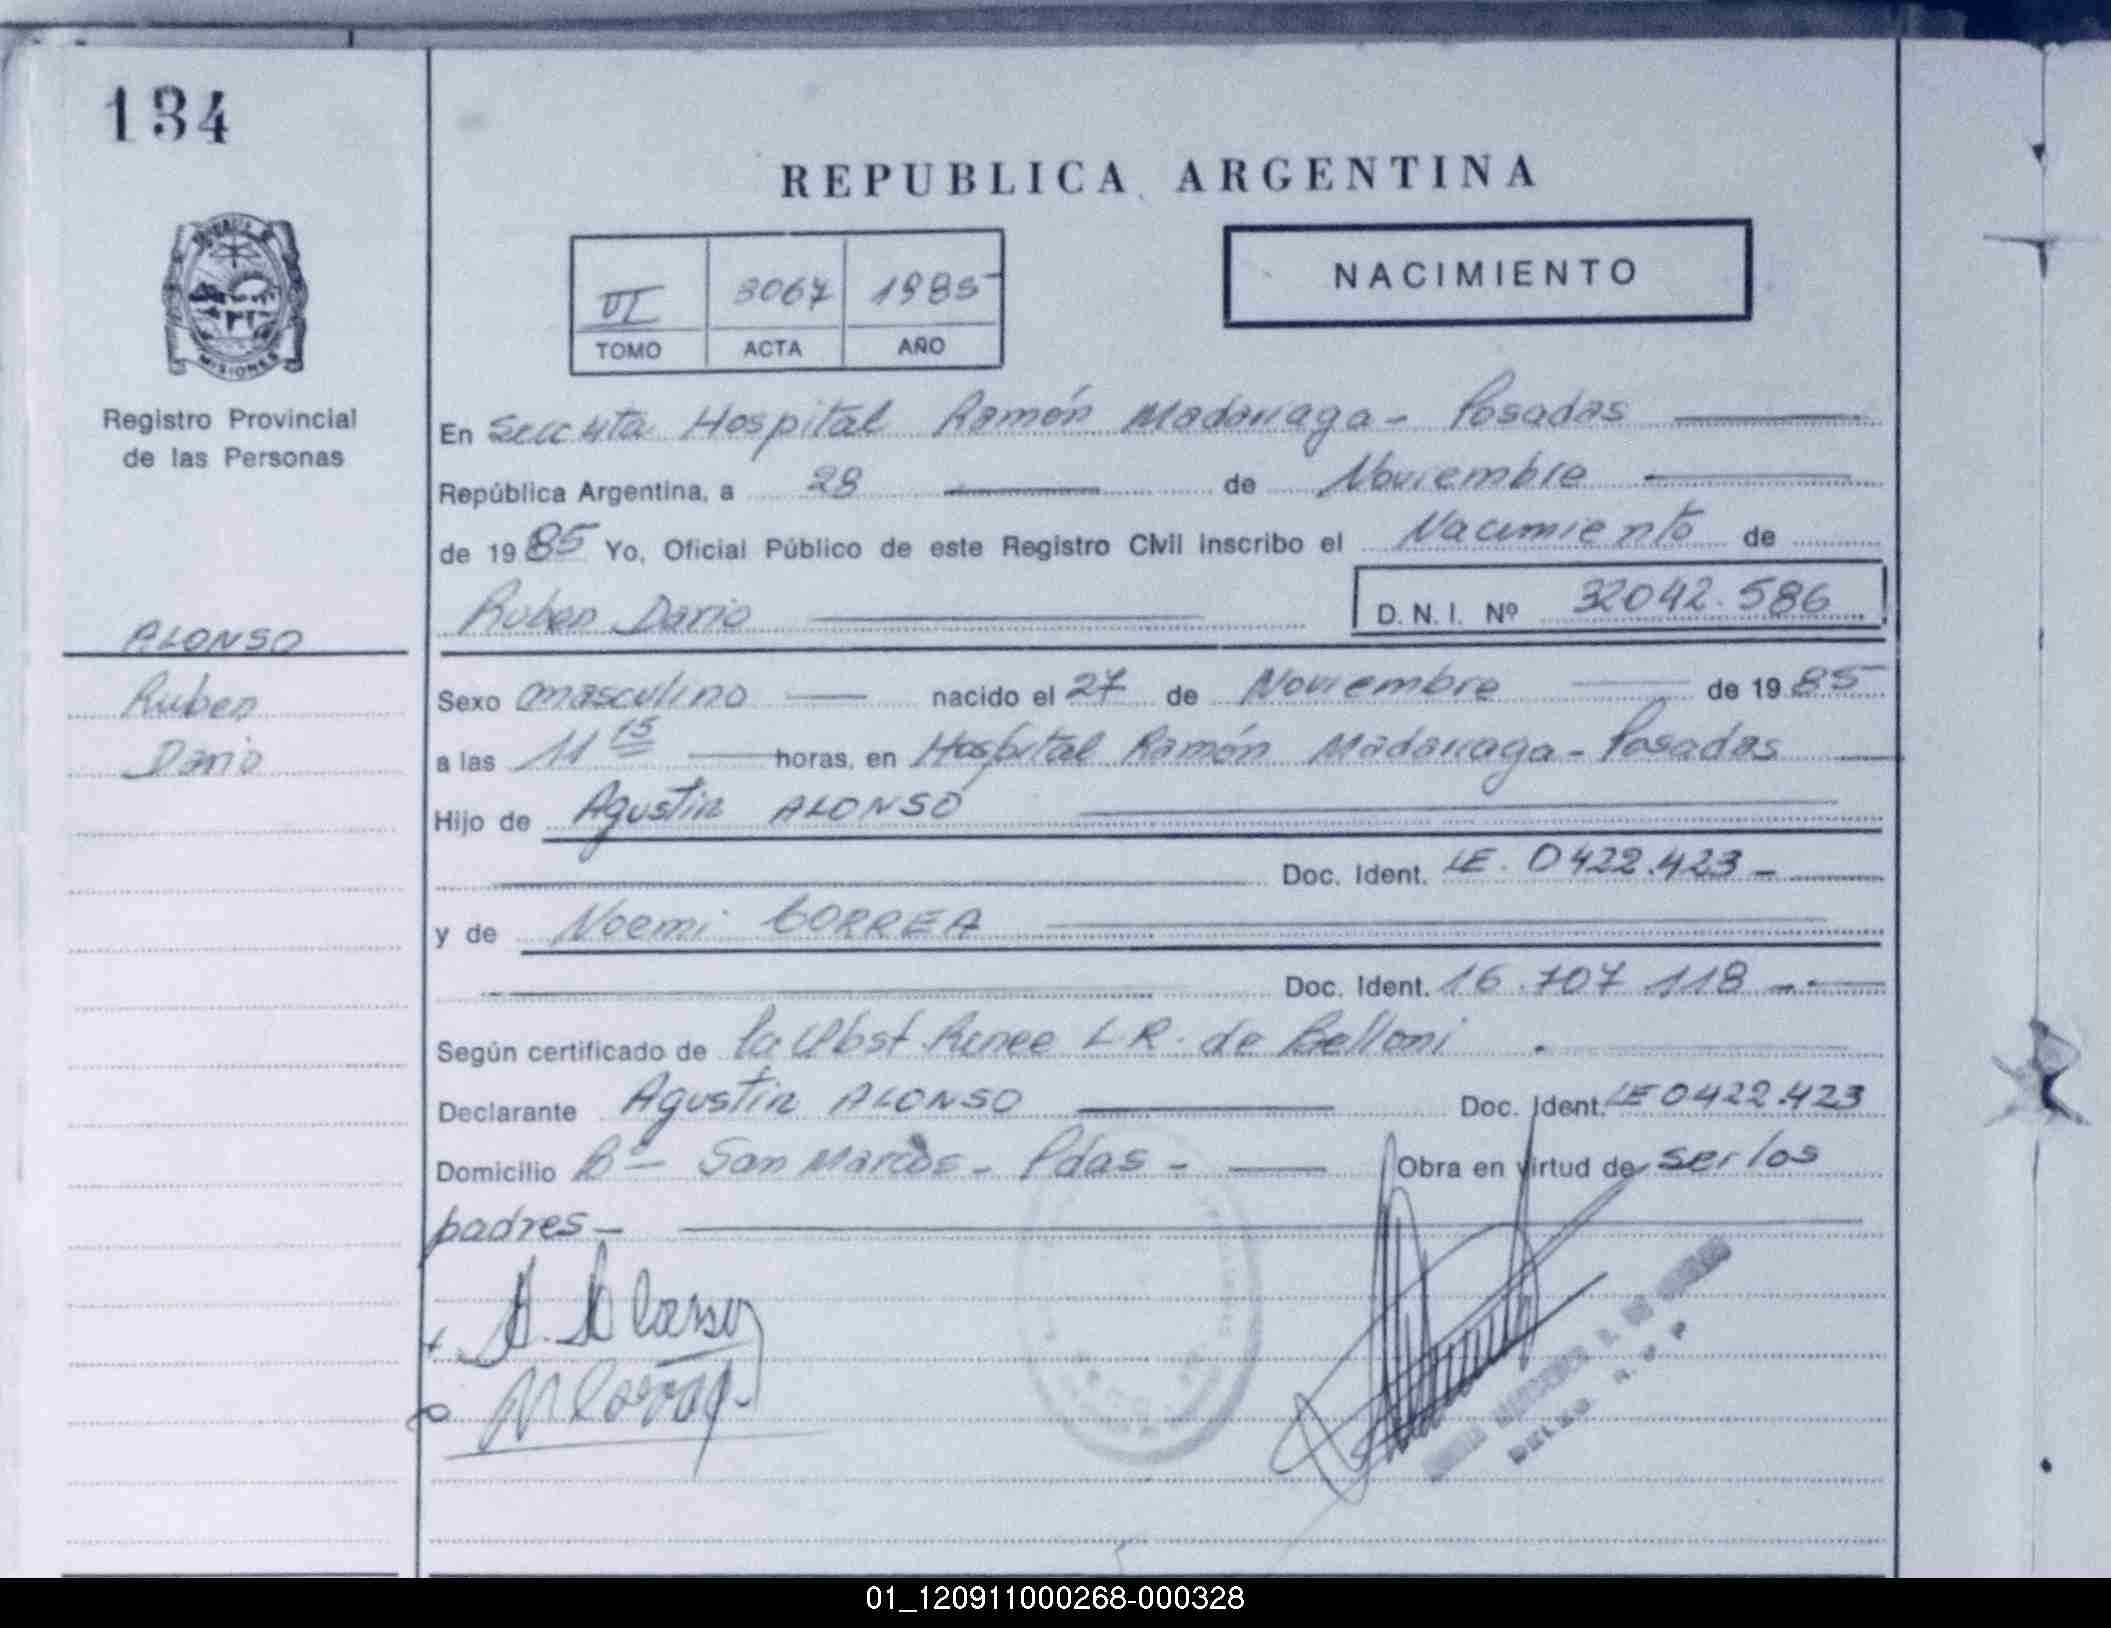 134
REPUBLICA ARGENTINA
NACIMIENTO
VI 3067 1985
TOMO ACTA AÑO
MISIONES
Registro Provincial
de las Personas
En Hospital Ramón Madariaga - Posadas
República Argentina, a 28 de Noviembre
de 1985 Yo, Oficial Público de este Registro Civil inscribo el Nacimiento de
Ruben Dario D.N.I. Nº 32042.586
ALONSO
Ruben
Dario
Sexo masculino nacido el 27 de Noviembre de 1985
a las 11 15 horas, en Hospital Ramón Madariaga - Posadas
Hijo de Agustin ALONSO
Doc. Ident. LE. 0422.423 -
y de Noemi CORREA
Doc. Ident. 16.707 118 -
Según certificado de la Obst. Renee L.R. de Belloni
Declarante Agustin ALONSO Doc. Ident. LE 0422.423
Domicilio Bº - San Marcos - Pdas - Obra en virtud de ser los
padres -
A. Alonso
01_120911000268-000328